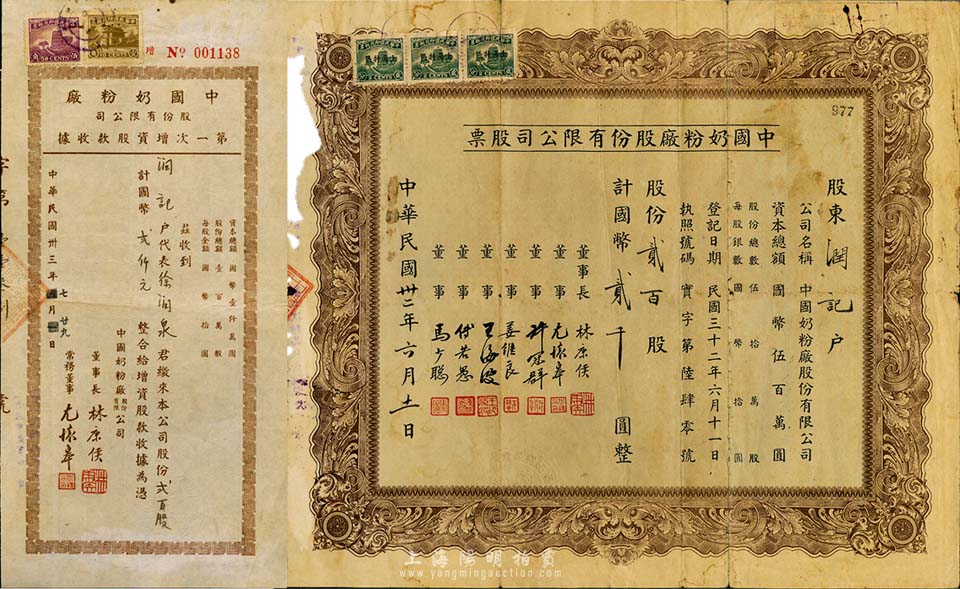 增 No 001138
中國奶粉廠
股份有限公司
第一次增資股款收據
資本總額 國幣壹仟萬圓
股份總額 壹百萬股
每股金額 國幣拾圓
茲收到
潤記戶代表徐潤泉君繳來本公司股份弍百股
計國幣弍仟元整合給增資股款收據為憑
中國奶粉廠股份有限公司
董事長 林康侯
常務董事 尤懷皋
中華民國卅三年七月廿九日
50 CENTS
10 CENTS
2 CENTS
2 CENTS
2 CENTS
977
中國奶粉廠股份有限公司股票
股東潤記戶
公司名稱 中國奶粉廠股份有限公司
資本總額 國幣伍百萬圓
股份總數 伍拾萬股
每股銀數 國幣拾圓
登記日期 民國三十二年六月十一日
執照號碼 實字第陸肆零號
股份貳百股
計國幣貳千圓整
董事長 林康侯
董事 尤懷皋
董事 許冠群
董事 姜維良
董事
董事 付若愚
董事 馬少聰
中華民國卅二年六月十一日
上海陽明拍賣
www.yangmingauction.com